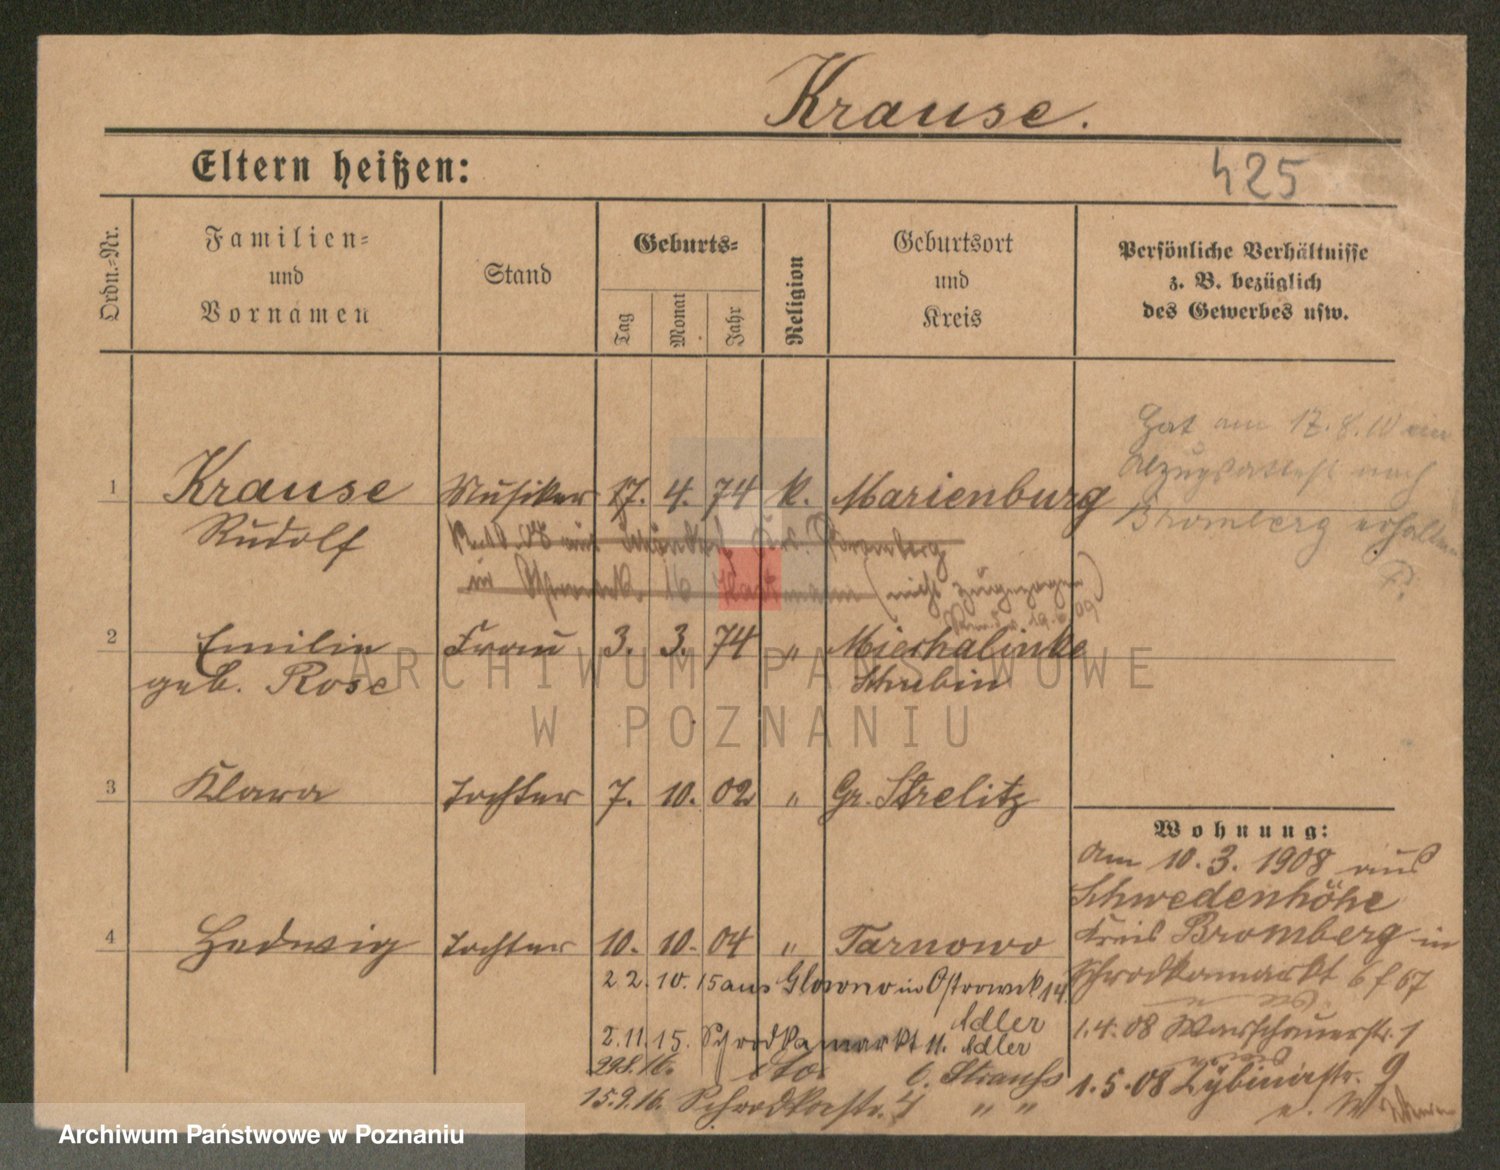 Krause.
Eltern heißen:
425
Ordn.-Nr.
Familien-
und
Vornamen
Stand
Geburts-
Tag
Monat
Jahr
Religion
Geburtsort
und
Kreis
Persönliche Verhältnisse
z. B. bezüglich
des Gewerbes usw.
Hat am 17. 8. 10 ein
Abzugsattest nach
Bromberg erhalten
1 Krause Musiker 17. 4. 74 k. Marienburg
Rudolf
Bromberg
in 16 (nicht zugezogen)
2 Emilie Frau 3. 3. 74 " Mierhalinke
geb. Rose Schubin
ARCHIWUM PAŃSTWOWE
W POZNANIU
3 Klara Tochter 7. 10. 02 " Gr. Strelitz
4 Hedwig Tochter 10. 10. 04 " Tarnowo
22. 10. 15 aus Glowno in Ostrowek 14.
Adler
2. 11. 15. Schrodkamarkt 11. Adler
29.8.16. dto. b. Strauss
15.9.16. Schrodkastr. 4 " "
Wohnung:
Am 10. 3. 1908 aus
Schwedenhöhe
Kreis Bromberg in
Schrodkamarkt 6 f 67
1.4.08 Warschauerstr. 1
1.5.08 Zybinastr. 9
Archiwum Państwowe w Poznaniu